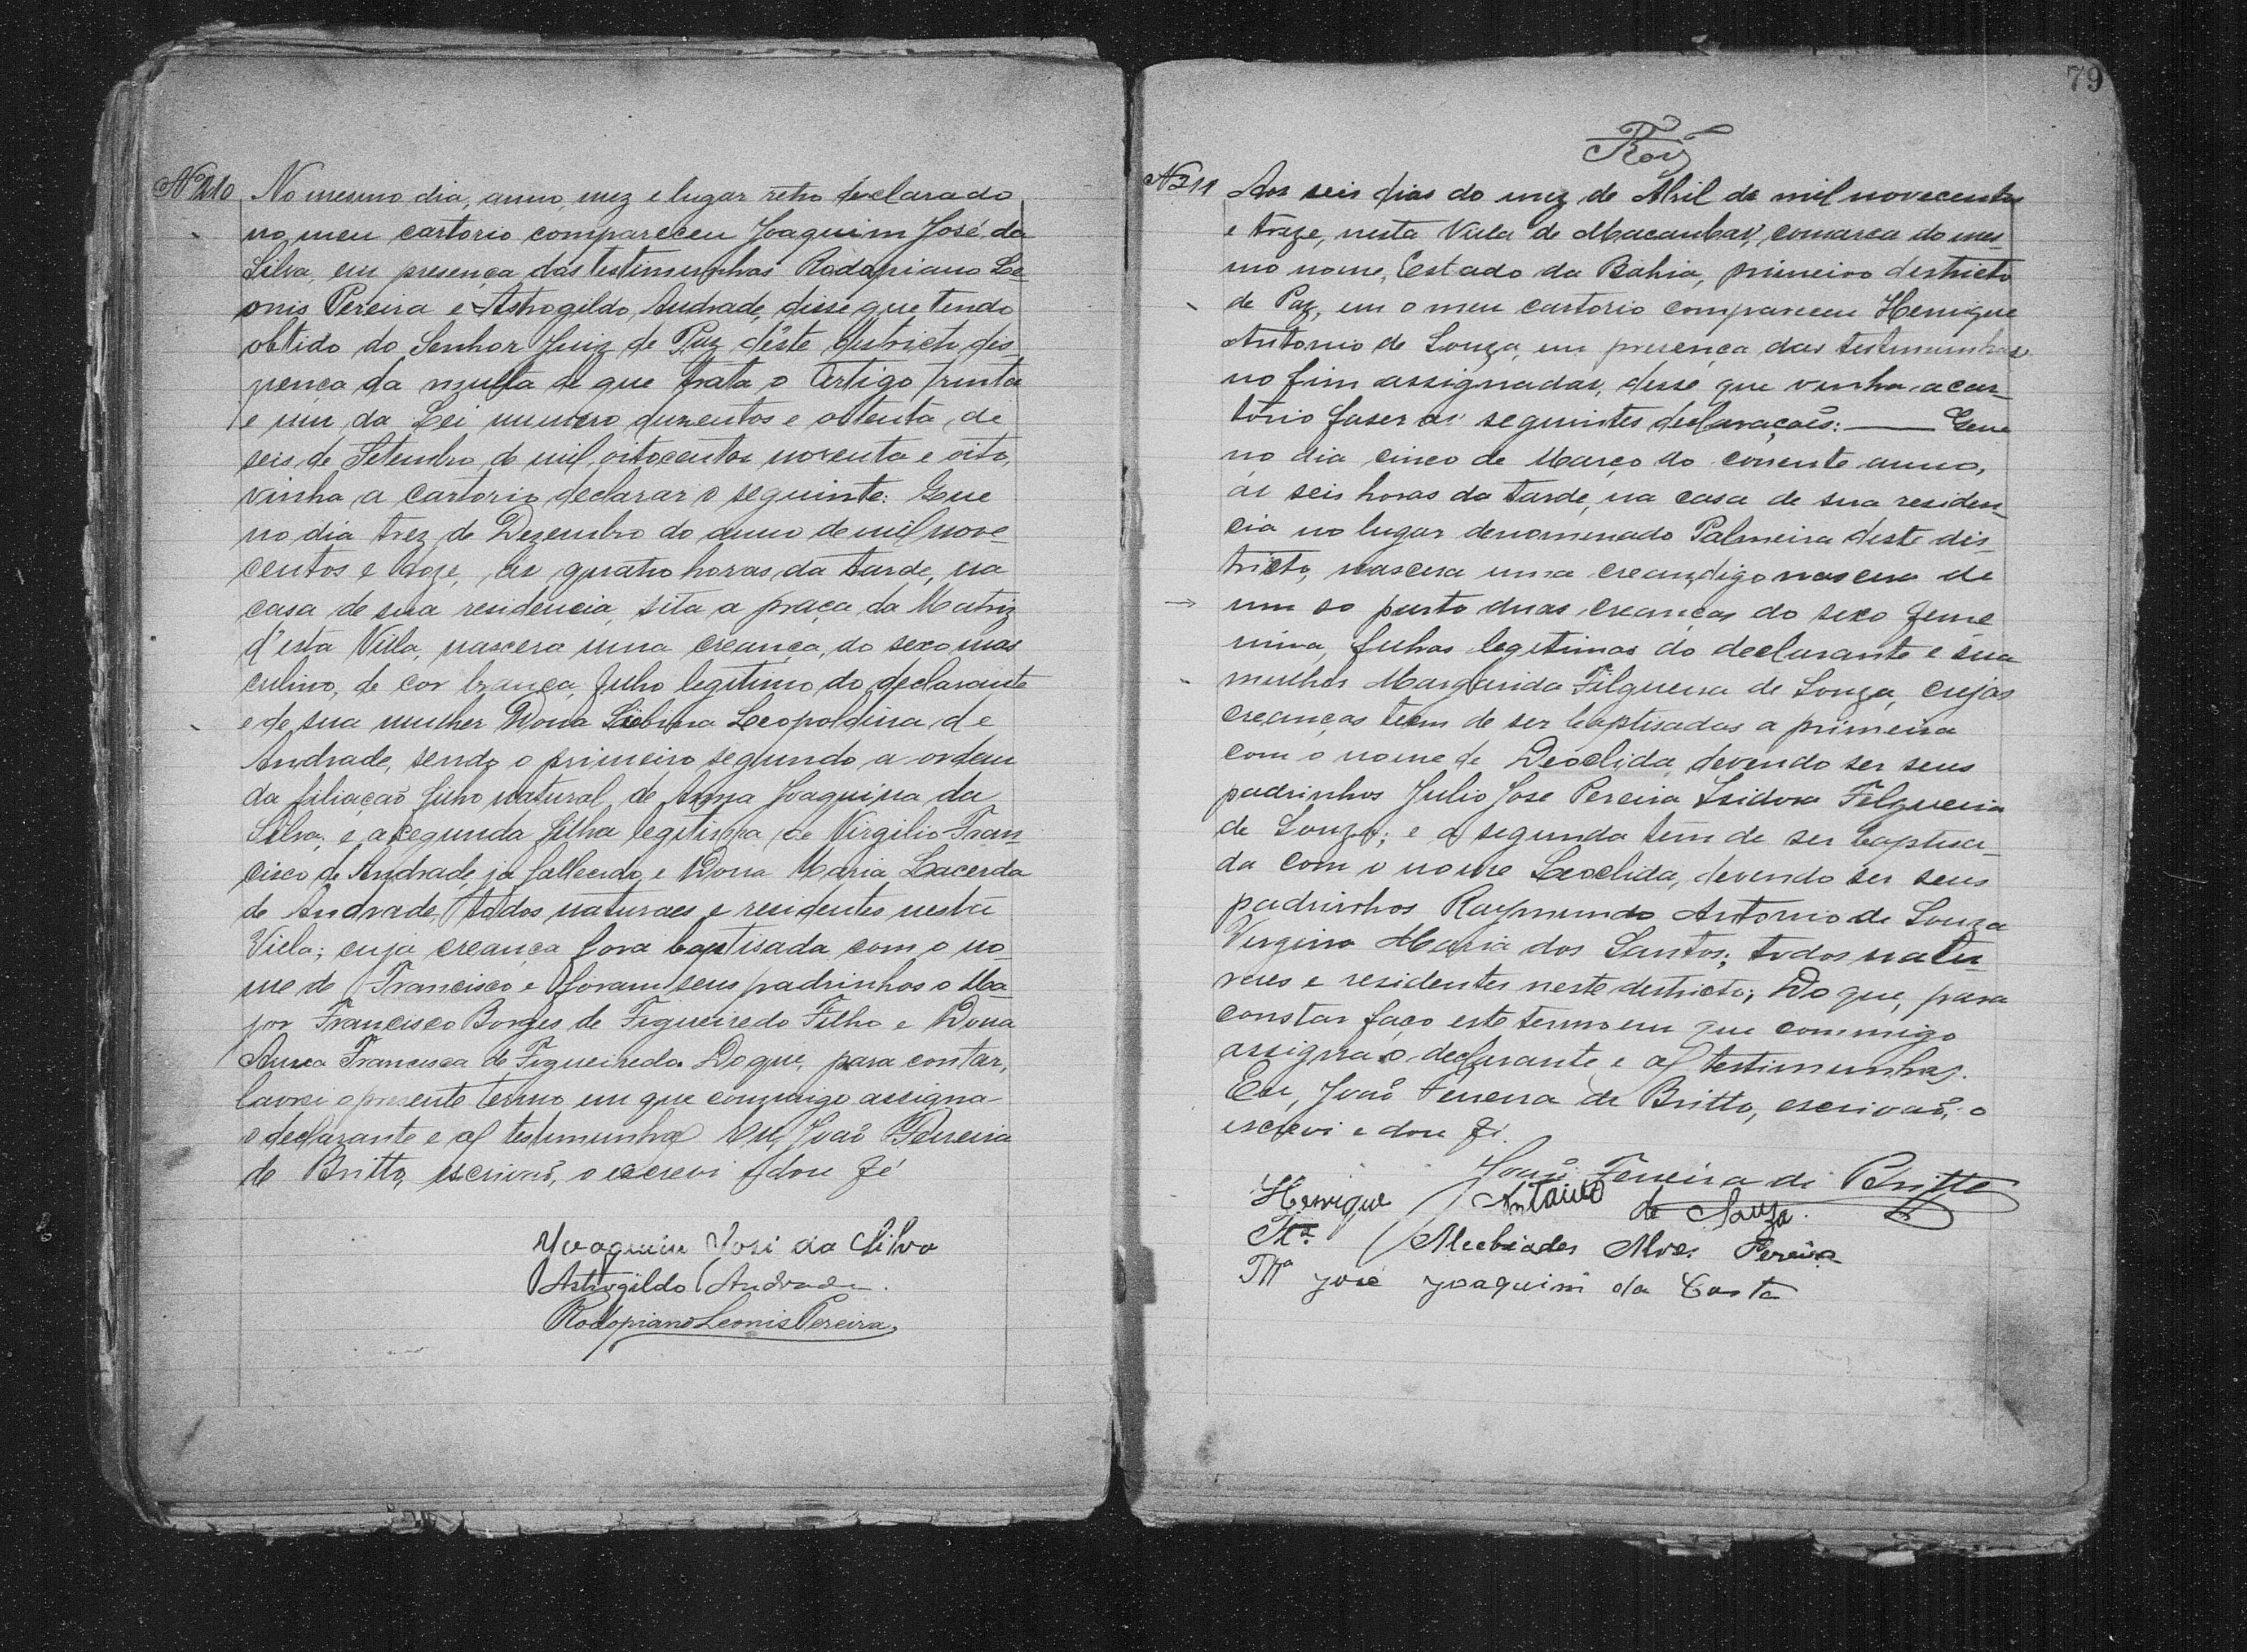 Nº 210 No mesmo dia, anno, mez e lugar retro declarado
no meu cartorio compareceu Joaquim José da
Silva, em presença das testimunhas Rodopiano Le-
onis Pereira e Astrogildo Andrade, disse que tendo
obtido do Senhor Juiz de Paz d'este districto dis
pença da multa de que trata o Artigo trinta
e um da Lei numero duzentos e oitenta, de
seis de Setembro de mil oitocentos noventa e oito,
vinha a cartorio declarar o seguinte: Que
no dia trez de Dezembro do anno de mil nove-
centos e doze, ás quatro horas da tarde, na
casa de sua residencia, sita a praça da Matriz
d'esta Villa, nascera uma creança, do sexo mas
culino, de cor branca, filho legitimo do declarante
e de sua mulher Dona Leopoldina de
Andrade, sendo o primeiro segundo a ordem
da filiação filho natural de Anna Joaquina da
Silva, e a segunda filha legitima de Virgilio Fran-
cisco de Andrade, já fallecido, e Dona Maria Lacerda
de Andrade, todos naturaes e residentes nesta
Villa; cuja creança fora baptisada com o no-
me de Francisco e foram seus padrinhos o Ma-
jor Francisco Borges de Figueiredo Filho e Dona
Aurea Francisca de Figueiredo. Do que, para contar,
lavrei o presente termo em que commigo assigna
o declarante e as testimunhas Eu, João Ferreira
de Britto, escrivaõ, o escrevi e dou fé
Joaquim José da Silva
Astrogildo Andrade.
Rodopiano Leonis Pereira.
79
Nº 211 Aos seis dias do mez de Abril de mil novecentos
e treze, nesta Villa de Macaubas, comarca do mes-
mo nome, Estado da Bahia, primeiro destricto
de Paz, em o meu cartorio compareceu Henrique
Antonio de Souza, em presença das testimunhas
no fim assignadas, disse que vinha a car-
torio faser as seguintes declaraçoẽs: — Que
no dia cinco de Março do corrente anno,
ás seis horas da tarde, na casa de sua residen-
cia no lugar denomenado Palmeira deste dis-
tricto, nascera uma creanç digo nascera de
um so parto duas creanças do sexo feme
nino, filhas legitimas do declarante e sua
mulher Margarida Filgueira de Souza, cujas
creanças tem de ser baptisadas a primeira
com o nome de Deoclida, devendo ser seus
padrinhos Julio Jose Pereira Isidora Felgueira
de Souza; e a segunda tem de ser baptisa-
da com o nome Leoclida, devendo ser seus
padrinhos Raymundo Antonio de Souza
Virginia Maria dos Santos; todos natu-
raes e residentes neste destricto; Do que, para
constar faço este termo em que commigo
assigna o declarante e as testimunhas.
Eu, João Ferreira de Britto, escrivaõ, o
escrevi e dou fé.
João Ferreira de Britto
Henrique Antonio de Souza.
Tª Alcebiades Alves Pereira
Tª José Joaquim da Costa